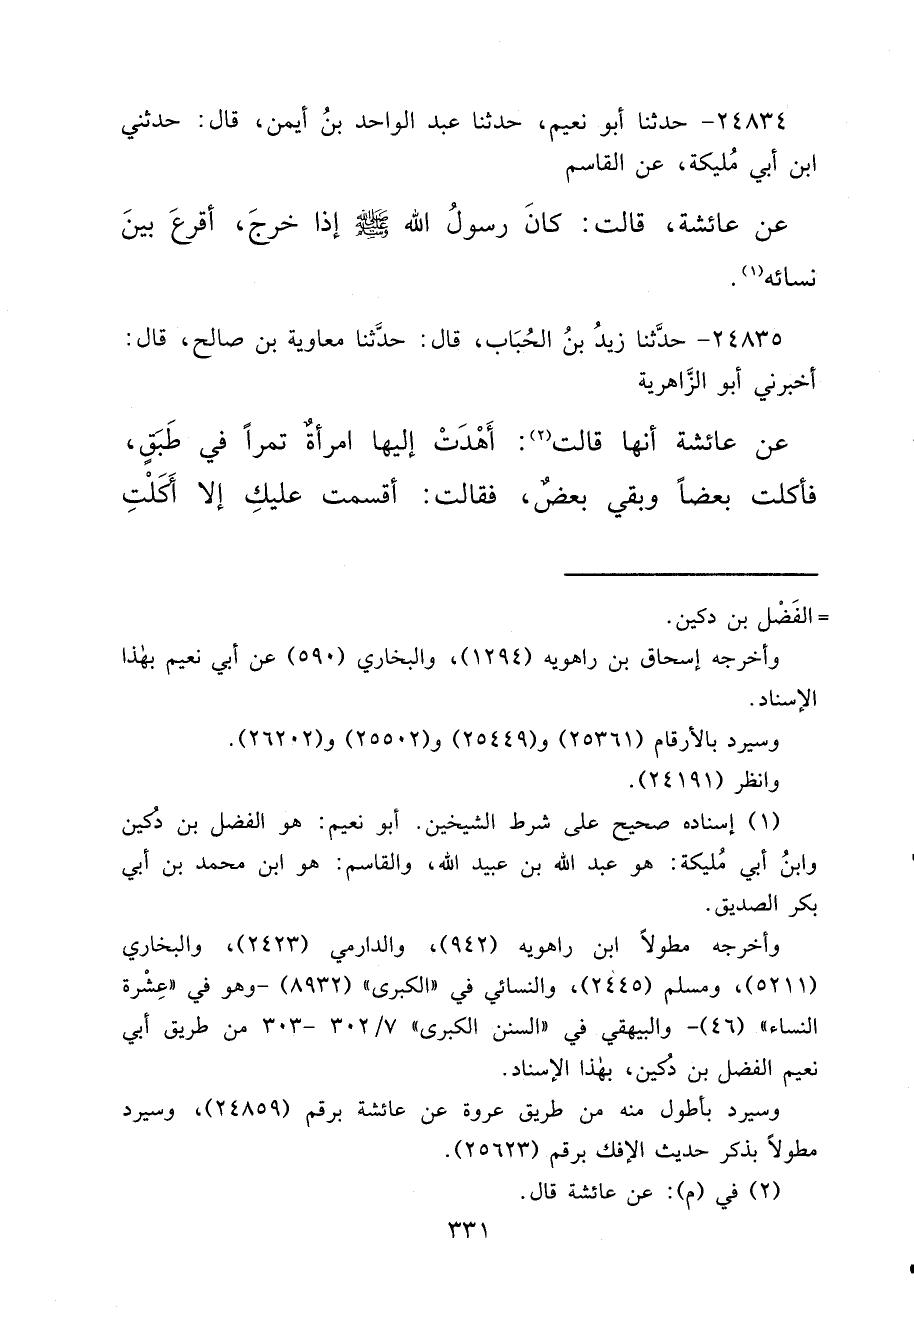 ٢٤٨٣٤- حدثنا أبو نعيم، حدثنا عبد الواحد بنُ أيمن، قال: حدثني
ابن أبي مُليكة، عن القاسم
عن عائشة، قالت: كانَ رسولُ الله ﷺ إذا خرجَ، أقرعَ بينَ
نسائه(١).
٢٤٨٣٥- حدَّثنا زيدُ بنُ الحُبَاب، قال: حدَّثنا معاوية بن صالح، قال:
أخبرني أبو الزَّاهرية
عن عائشة أنها قالت(٢): أَهْدَتْ إليها امرأةٌ تمراً في طَبَقٍ،
فأكلت بعضاً وبقي بعضٌ، فقالت: أقسمت عليكِ إلا أَكَلْتِ
= الفَضْل بن دكين.
وأخرجه إسحاق بن راهويه (١٢٩٤)، والبخاري (٥٩٠) عن أبي نعيم بهٰذا
الإسناد.
وسيرد بالأرقام (٢٥٣٦١) و(٢٥٤٤٩) و(٢٥٥٠٢) و(٢٦٢٠٢).
وانظر (٢٤١٩١).
(١) إسناده صحيح على شرط الشيخين. أبو نعيم: هو الفضل بن دُكين
وابنُ أبي مُليكة: هو عبد الله بن عبيد الله، والقاسم: هو ابن محمد بن أبي
بكر الصديق.
وأخرجه مطولاً ابن راهويه (٩٤٢)، والدارمي (٢٤٢٣)، والبخاري
(٥٢١١)، ومسلم (٢٤٤٥)، والنسائي في «الكبرى» (٨٩٣٢) -وهو في «عِشْرة
النساء» (٤٦)- والبيهقي في «السنن الكبرى» ٧/ ٣٠٢ -٣٠٣ من طريق أبي
نعيم الفضل بن دُكين، بهٰذا الإسناد.
وسيرد بأطول منه من طريق عروة عن عائشة برقم (٢٤٨٥٩)، وسيرد
مطولاً بذكر حديث الإفك برقم (٢٥٦٢٣).
(٢) في (م): عن عائشة قال.
٣٣١